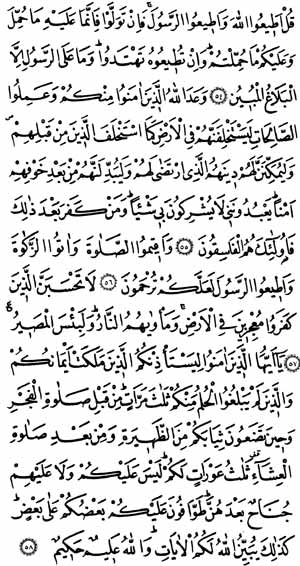 قُلْ اَطٖيعُوا اللّٰهَ وَاَطٖيعُوا الرَّسُولَۚ فَاِنْ تَوَلَّوْا فَاِنَّمَا عَلَيْهِ مَا حُمِّلَ
وَعَلَيْكُمْ مَا حُمِّلْتُمْؕ وَاِنْ تُطٖيعُوهُ تَهْتَدُواؕ وَمَا عَلَى الرَّسُولِ اِلَّا
الْبَلَاغُ الْمُبٖينُ ﴿٥٤﴾ وَعَدَ اللّٰهُ الَّذٖينَ اٰمَنُوا مِنْكُمْ وَعَمِلُوا
الصَّالِحَاتِ لَيَسْتَخْلِفَنَّهُمْ فِي الْاَرْضِ كَمَا اسْتَخْلَفَ الَّذٖينَ مِنْ قَبْلِهِمْۖ
وَلَيُمَكِّنَنَّ لَهُمْ دٖينَهُمُ الَّذِي ارْتَضٰى لَهُمْ وَلَيُبَدِّلَنَّهُمْ مِنْ بَعْدِ خَوْفِهِمْ
اَمْنًاؕ يَعْبُدُونَنٖي لَا يُشْرِكُونَ بٖي شَيْئًاؕ وَمَنْ كَفَرَ بَعْدَ ذٰلِكَ
فَاُولٰٓئِكَ هُمُ الْفَاسِقُونَ ﴿٥٥﴾ وَاَقٖيمُوا الصَّلٰوةَ وَاٰتُوا الزَّكٰوةَ
وَاَطٖيعُوا الرَّسُولَ لَعَلَّكُمْ تُرْحَمُونَ ﴿٥٦﴾ لَا تَحْسَبَنَّ الَّذٖينَ
كَفَرُوا مُعْجِزٖينَ فِي الْاَرْضِۚ وَمَأْوٰيهُمُ النَّارُؕ وَلَبِئْسَ الْمَصٖيرُ ࣖ
﴿٥٧﴾ يَٓا اَيُّهَا الَّذٖينَ اٰمَنُوا لِيَسْتَأْذِنْكُمُ الَّذٖينَ مَلَكَتْ اَيْمَانُكُمْ
وَالَّذٖينَ لَمْ يَبْلُغُوا الْحُلُمَ مِنْكُمْ ثَلٰثَ مَرَّاتٍؕ مِنْ قَبْلِ صَلٰوةِ الْفَجْرِ
وَحٖينَ تَضَعُونَ ثِيَابَكُمْ مِنَ الظَّهٖيرَةِ وَمِنْ بَعْدِ صَلٰوةِ
الْعِشَٓاءِؕ ثَلٰثُ عَوْرَاتٍ لَكُمْؕ لَيْسَ عَلَيْكُمْ وَلَا عَلَيْهِمْ
جُنَاحٌ بَعْدَهُنَّؕ طَوَّافُونَ عَلَيْكُمْ بَعْضُكُمْ عَلٰى بَعْضٍؕ
كَذٰلِكَ يُبَيِّنُ اللّٰهُ لَكُمُ الْاٰيَاتِؕ وَاللّٰهُ عَلٖيمٌ حَكٖيمٌ ﴿٥٨﴾